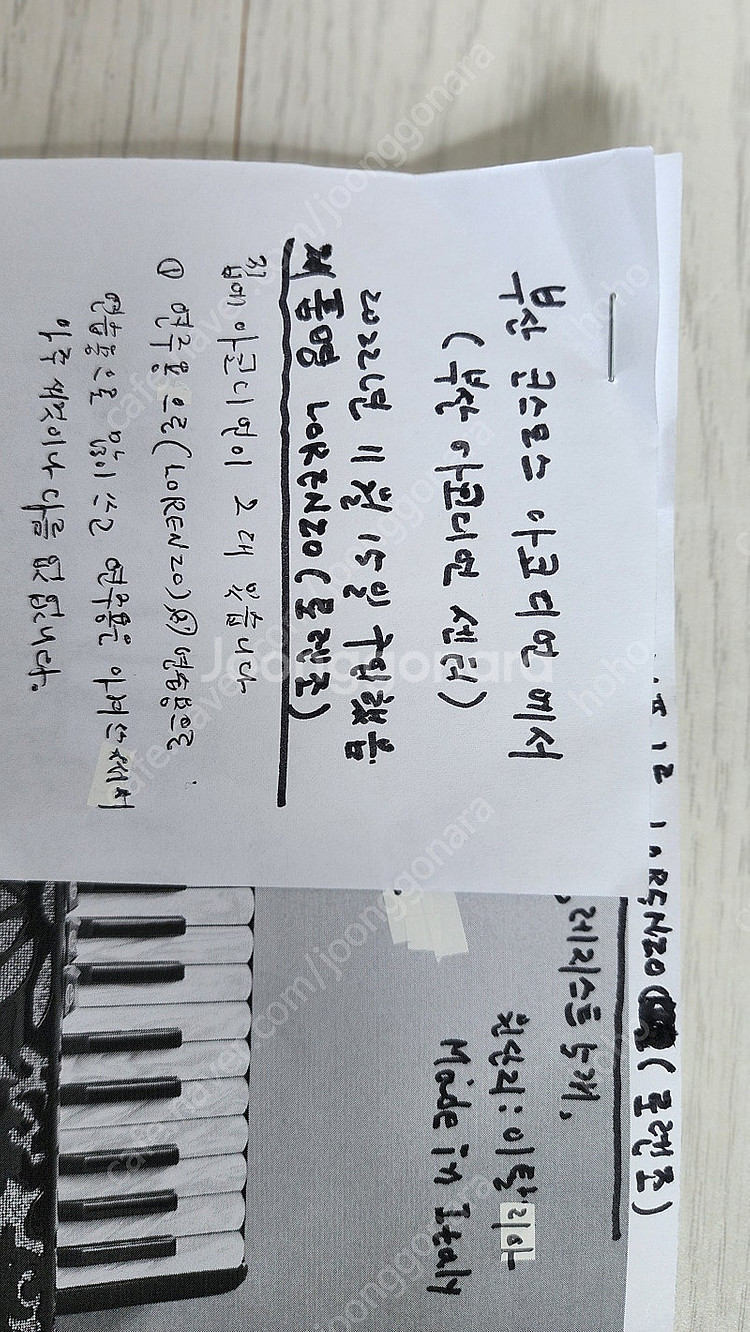 부산 코스모스 아코디언에서
(부산 아코디언 센터)
2022년 11월 15일 구입했음
제품명 LORENZO (로렌조)
집에 아코디언이 2대 있습니다
① 연주용으로 (LORENZO) ② 연습용으로
연습용으로 많이 쓰고 연주용은 아껴 쓰면서
아주 새것이나 다름 없습니다.
12 LORENZO (로렌조)
레지스트 5개,
원산지: 이탈리아
Made in Italy
Joonggonara